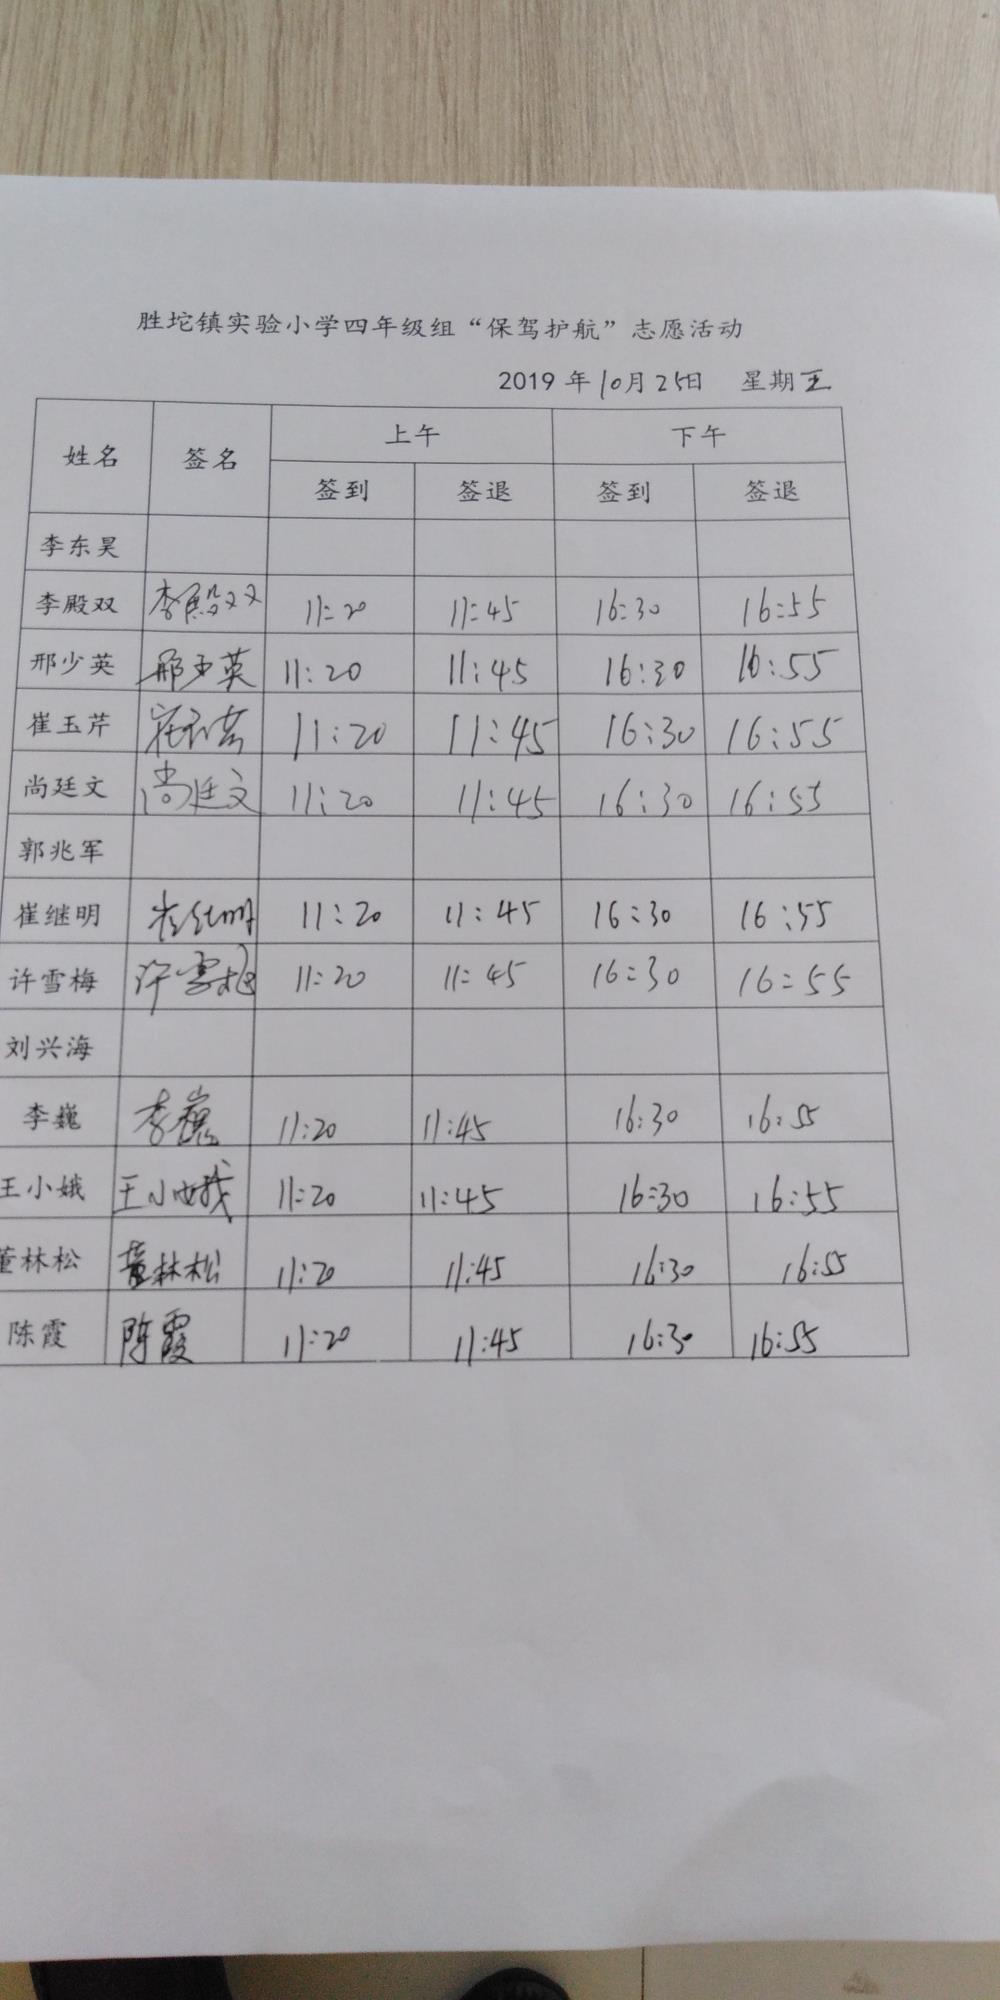 胜坨镇实验小学四年级组“保驾护航”志愿活动
2019 年 10月 25日 星期五
姓名 签名 上午 下午
签到 签退 签到 签退
李东昊
李殿双 李殿双 11:20 11:45 16:30 16:55
邢少英 邢少英 11:20 11:45 16:30 16:55
崔玉芹 崔玉芹 11:20 11:45 16:30 16:55
尚廷文 尚廷文 11:20 11:45 16:30 16:55
郭兆军
崔继明 崔继明 11:20 11:45 16:30 16:55
许雪梅 许雪梅 11:20 11:45 16:30 16:55
刘兴海
李巍 李巍 11:20 11:45 16:30 16:55
王小娥 王小娥 11:20 11:45 16:30 16:55
董林松 董林松 11:20 11:45 16:30 16:55
陈霞 陈霞 11:20 11:45 16:30 16:55